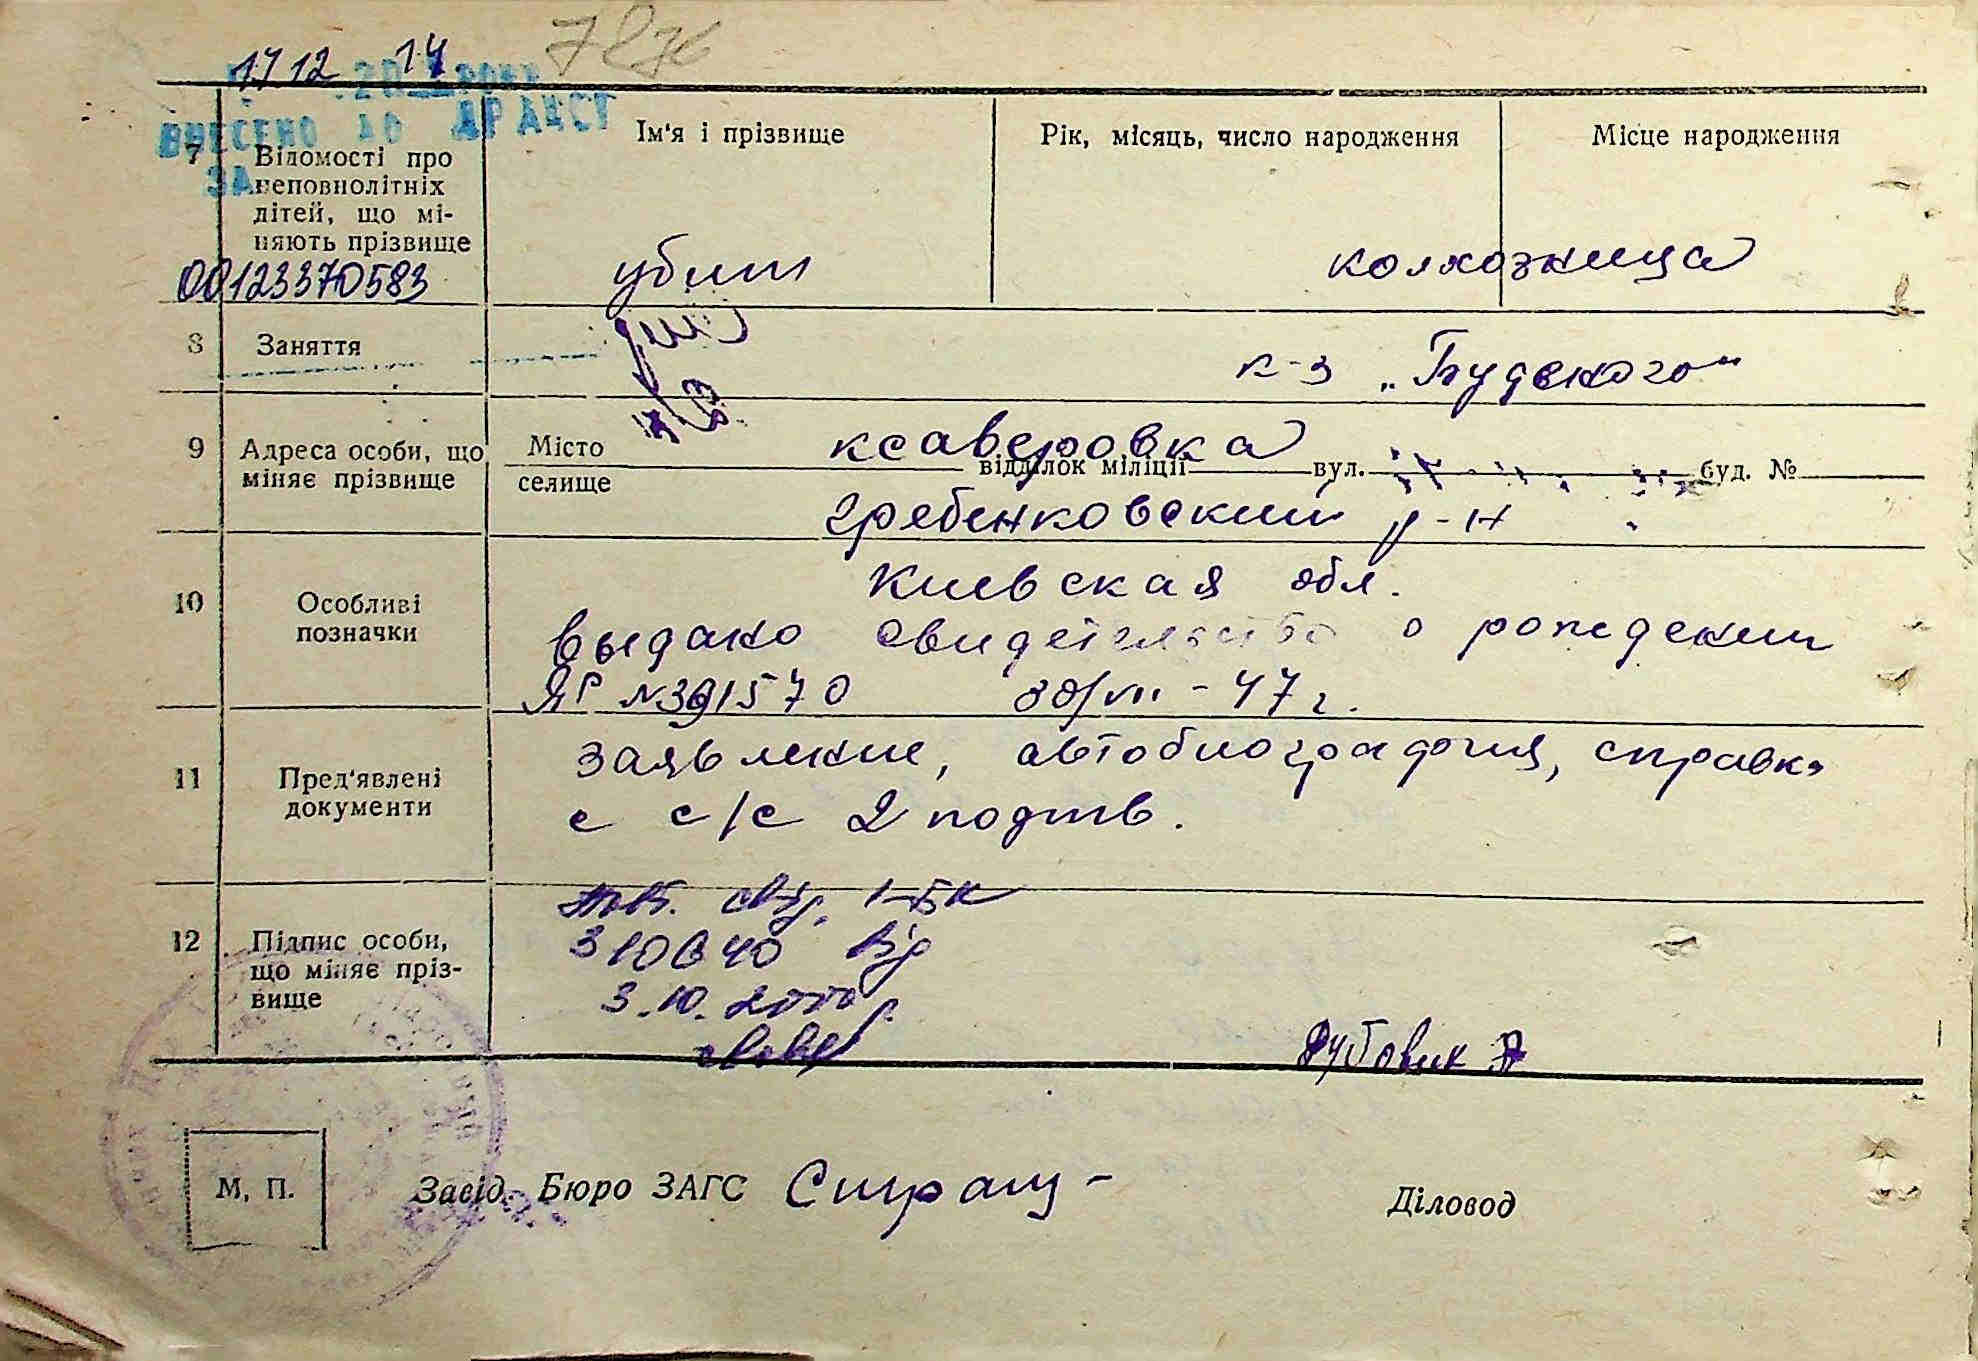 7876
17 12 2014 року
ВНЕСЕНО ДО ДРАЦСГ
ЗА
7 Відомості про неповнолітніх дітей, що міняють прізвище
Ім'я і прізвище
Рік, місяць, число народження
Місце народження
00123370583
убит
колхозница
8 Заняття
к-з „Будённого"
9 Адреса особи, що міняє прізвище
Місто селище
ксаверовка
відділок міліції вул. буд. №
гребенковский р-н
Киевская обл.
10 Особливі позначки
выдано свидетельство о рождении
ЯР N391570 30/VII - 47 г.
11 Пред'явлені документи
заявление, автобиография, справка
с с/с 2 подтв.
12 Підпис особи, що міняє прізвище
Повт. свід. І-БК
310640 від
3.10.2000р.
Рубовик А
М, П.
Завід. Бюро ЗАГС
Діловод